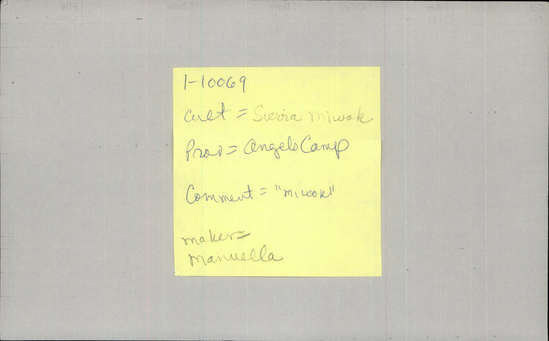 1-10069
Cult = Sierra Miwok
Prov = Angels Camp
Comment = "miwok"
maker=
Manuella